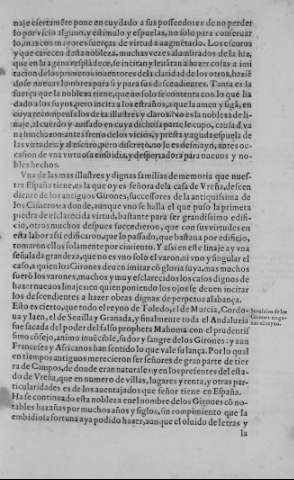 naje esertambre pone en cuydado a sus possedores de no perder
lo por vicio alguno, y estimulo y espuelas, no solo para conseruar
lo, mas con mayores fuerças de virtud augmētado. Los escuros
y que carecen desta nobleza, muchas vezes alumbrados de la luz,
que en la agena resplādece, se incitan y leuātan a hazer cosas a imi
tacion de los primeros inuentores de la claridad de los otros, haziē
dose de nueuo labores para si y para sus descendientes. Tanta es la
fuerça que la nobleza tiene, que no solo se contenta con lo que ha
dado a los suyos, pero incita a los estraños, a que la amen y sigā, en
cuya recompensa los dexa illustres y claros. No es la nobleza de li-
naje, al cuerdo y ausado en cuya dichosa parte le cupo, causa d̄ va
na hinchazon: antes freno de los vicios, y presta y aguda espuela de
las virtudes: y al escuro, pero discreto, no le es desmayo, antes oc-
casion de vna virtuosa embidia, y despertadora para nueuos y no-
bles hechos.
Vna de las mas illustres y dignas familias de memoria que nues-
tra España tiene, es la que oy es señora de la casa de Vreña, descen
diente de los antiguos Girones, successores de la antiquissima de
los Cisneros: a donde, aunque vno se halla el que puso la primera
piedra de esclarecida virtud, bastante para ser grandissimo edifi-
cio, otros muchos despues succedieron, que con sus virtudes en
esta labor assi edificaron, que lo passado, que bastaua por edificio,
tomaron ellos solamente por cimiento. Y assi en este linaje ay vna
señalada grandeza, que no es vno solo el varon, ni vno y singular el
caso, a quien los Girones deuen imitar cō gloria suya, mas muchos
fuerō los varones, muchos y muy esclarecidos los casos dignos de
hazer nueuos linajes: en quien poniendo los ojos se deuen incitar
los descendientes a hazer obras dignas de perpetua alabança.
Esto es cierto, que todo el reyno de Toledo, y el de Murcia, Cordo-
ua y Iaen, el de Seuilla y Granada, y finalmente toda el Andaluzia
fue sacada del poder del falso propheta Mahoma con el prudentis
simo cōsejo, animo inuēcible, sudor y sangre de los Girones: y aun
Franceses y Africanos han sentido lo que vale su lança. Por lo qual
en tiempos antiguos merecieron ser señores de gran parte de tier
ra de Campos, de donde eran naturales: y en los presentes del esta-
do de Vreña, que en numero de villas, lugares y renta, y otras par-
ticularidades es de los auentajados que señor tiene en España.
Ha se continuado esta nobleza en el nombre de los Girones cō no-
tables hazañas por muchos años y siglos, sin rompimiento que la
embidiosa fortuna aya podido hazer, aunque el oluido de letras y
la